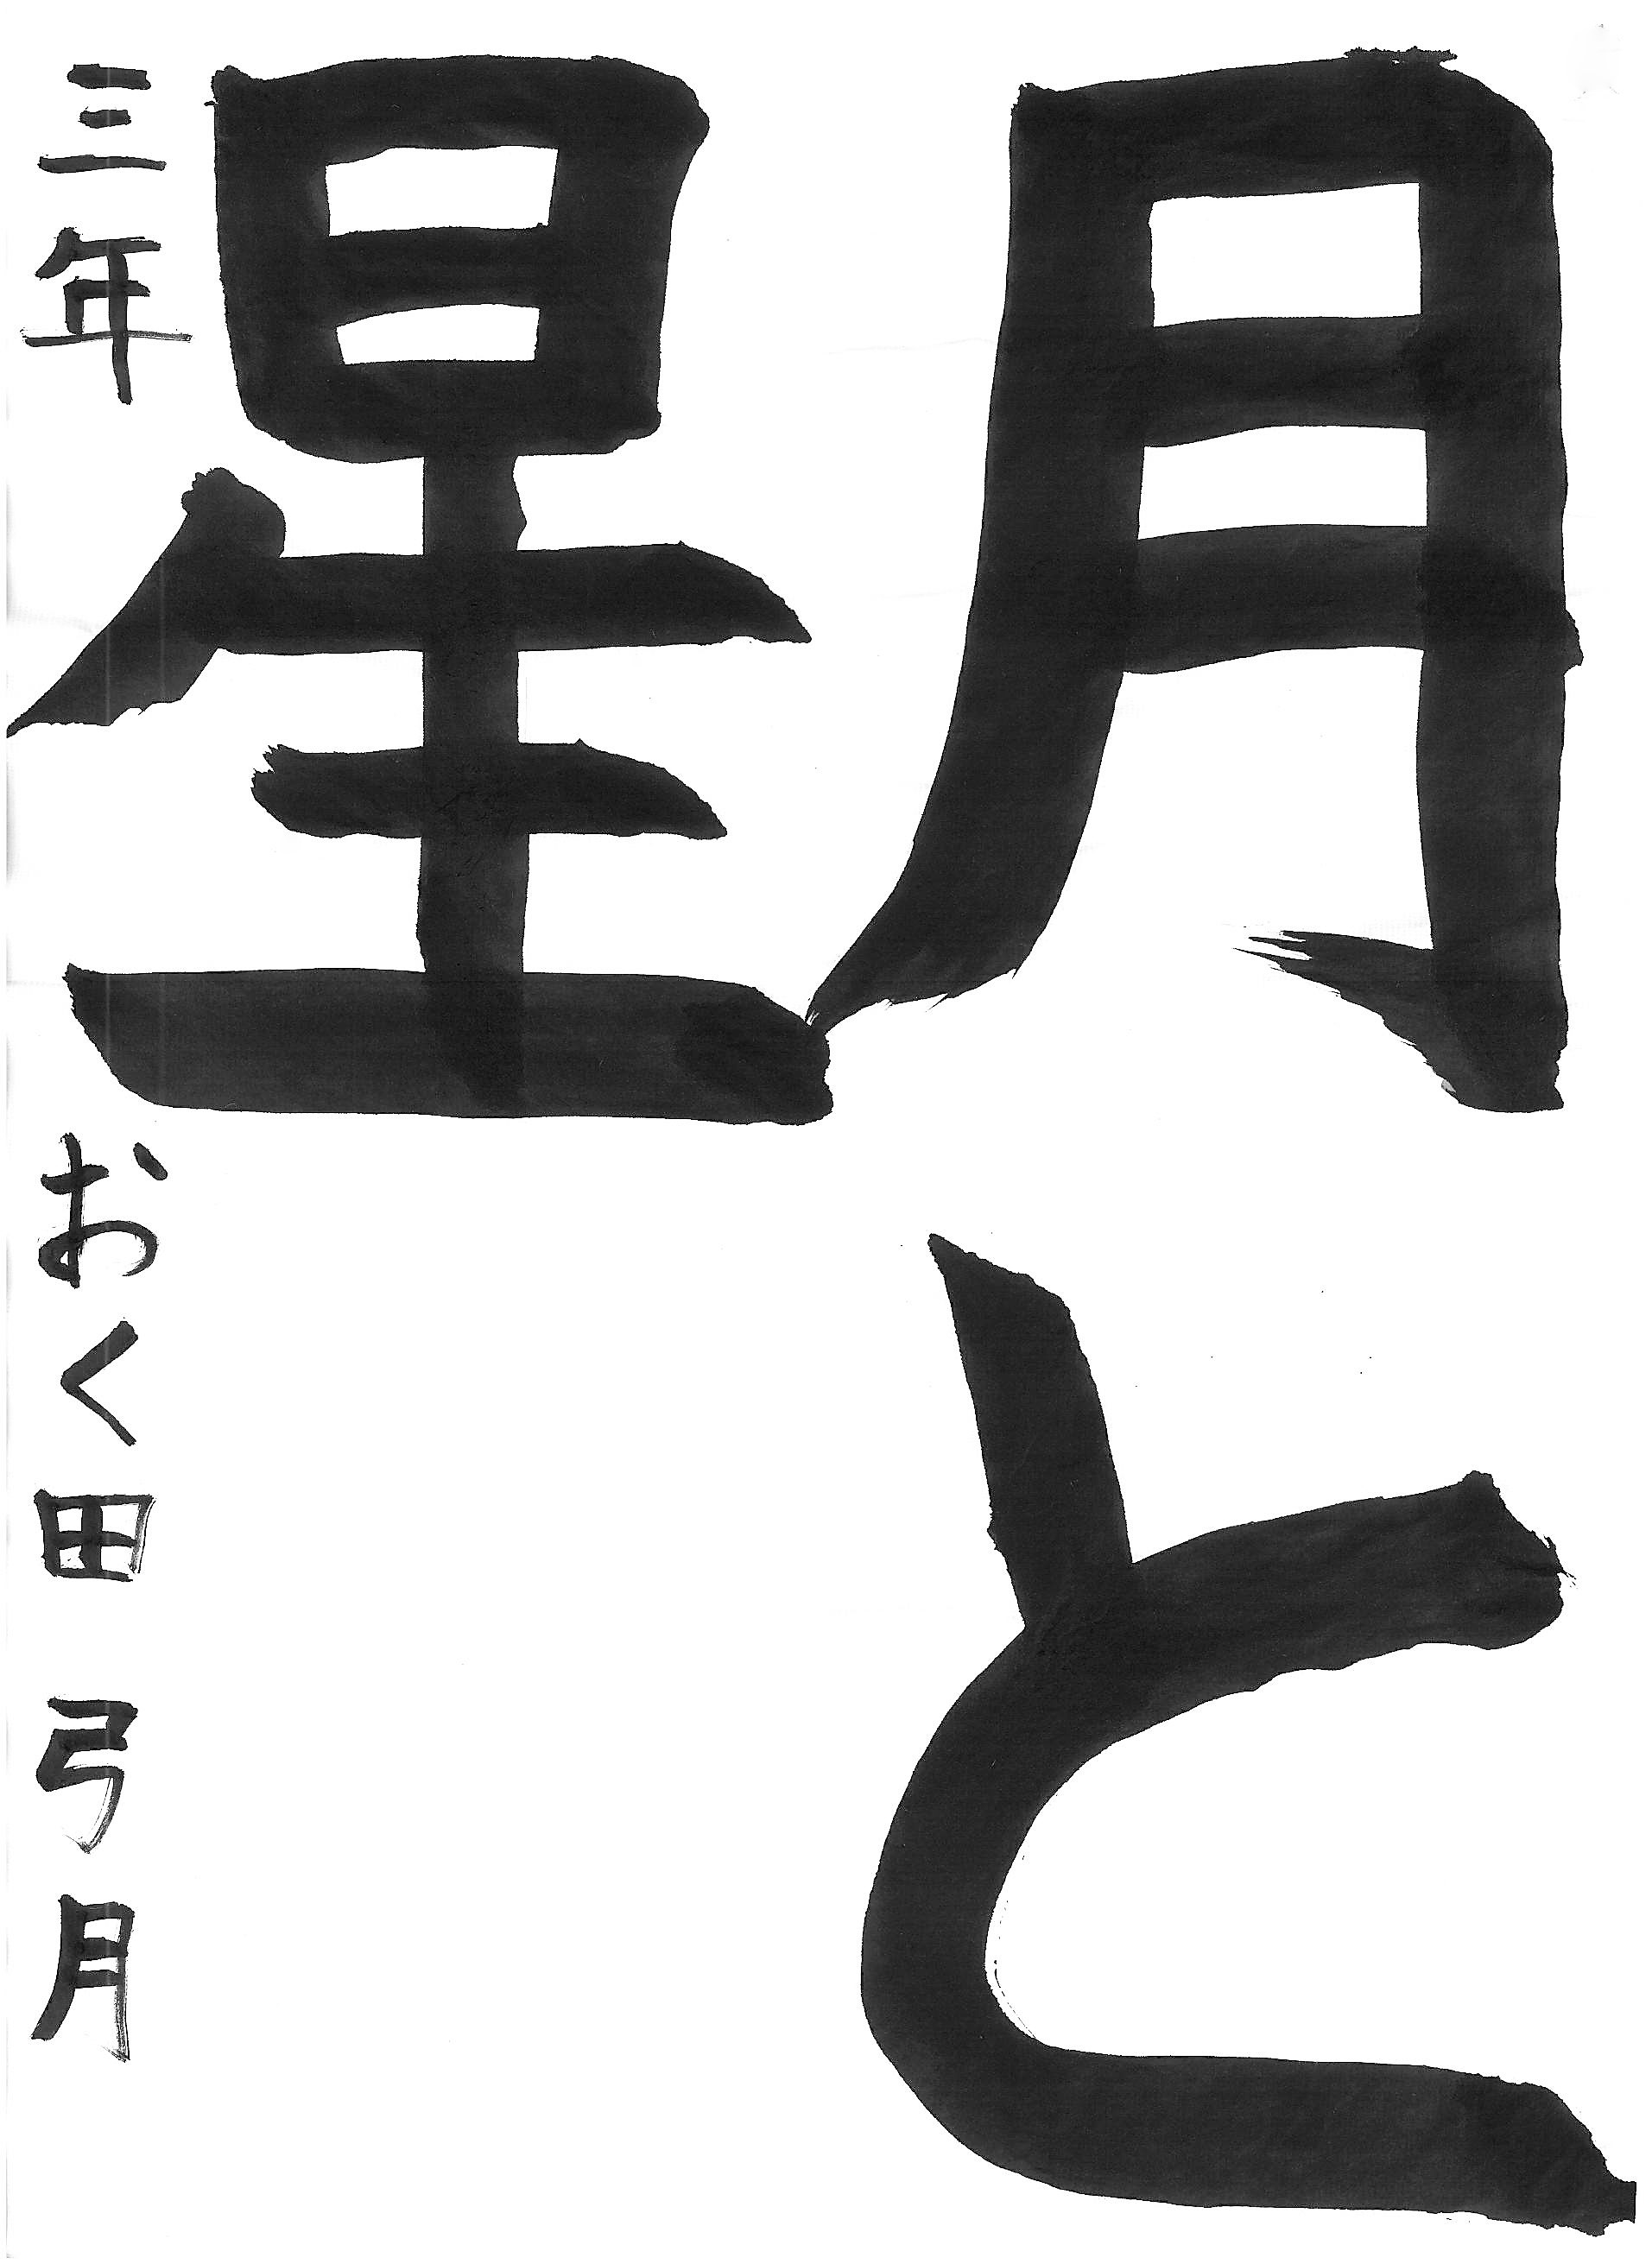 月と
星
三年 おく田 弓月